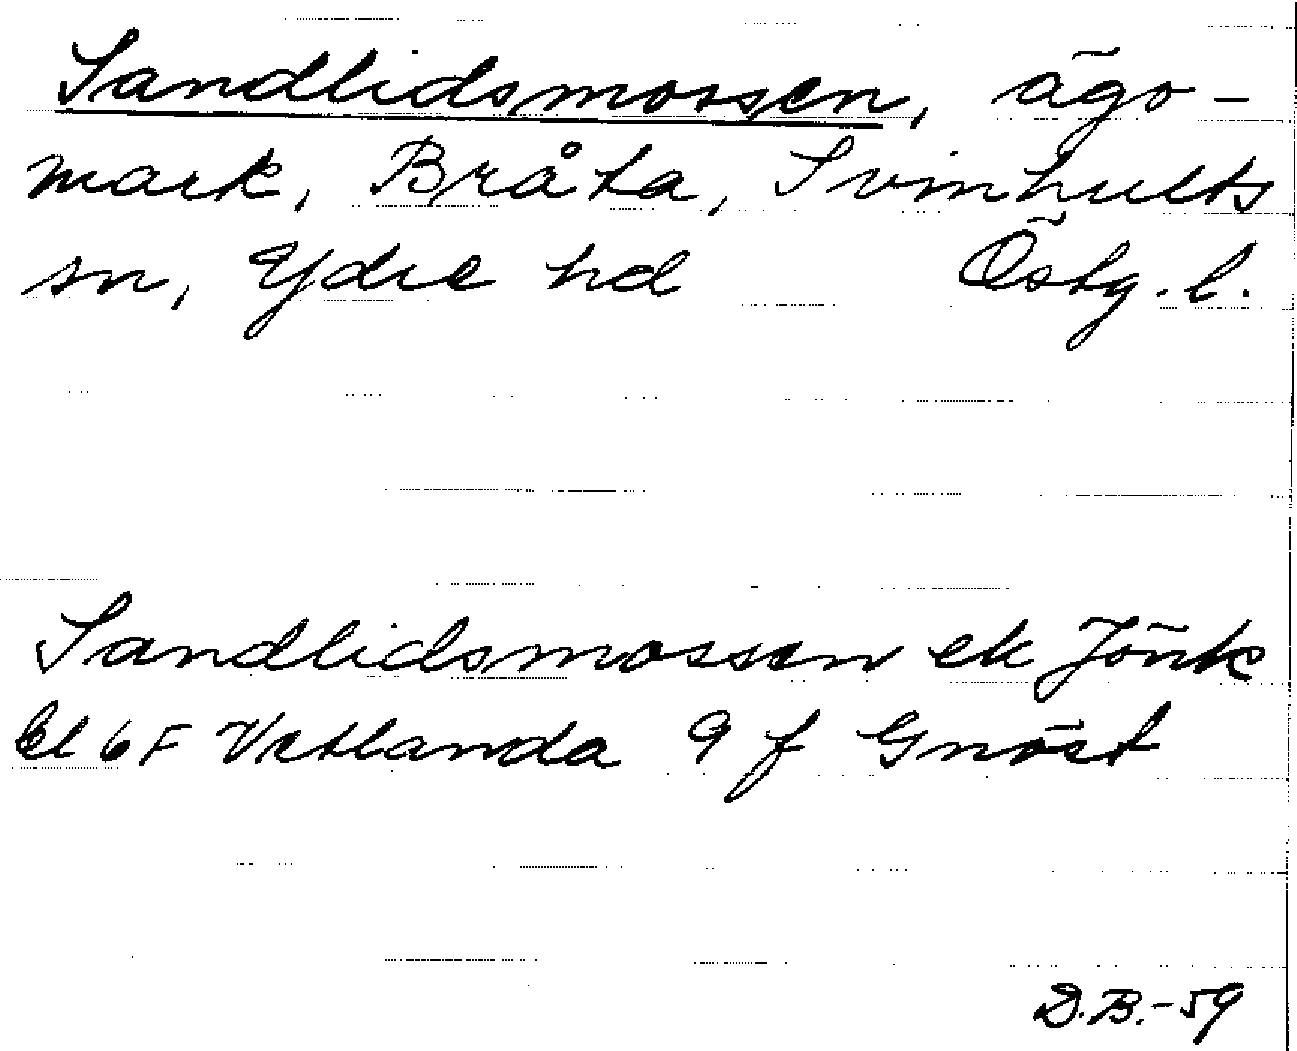 Sandlidsmossen, ägo-
mark, Bråta, Svinhults
sn, Ydre hd Östg. l.
Sandlidsmossen ek Jönk
bl 6F Vetlanda 9 f Gnöst
D.B.-59